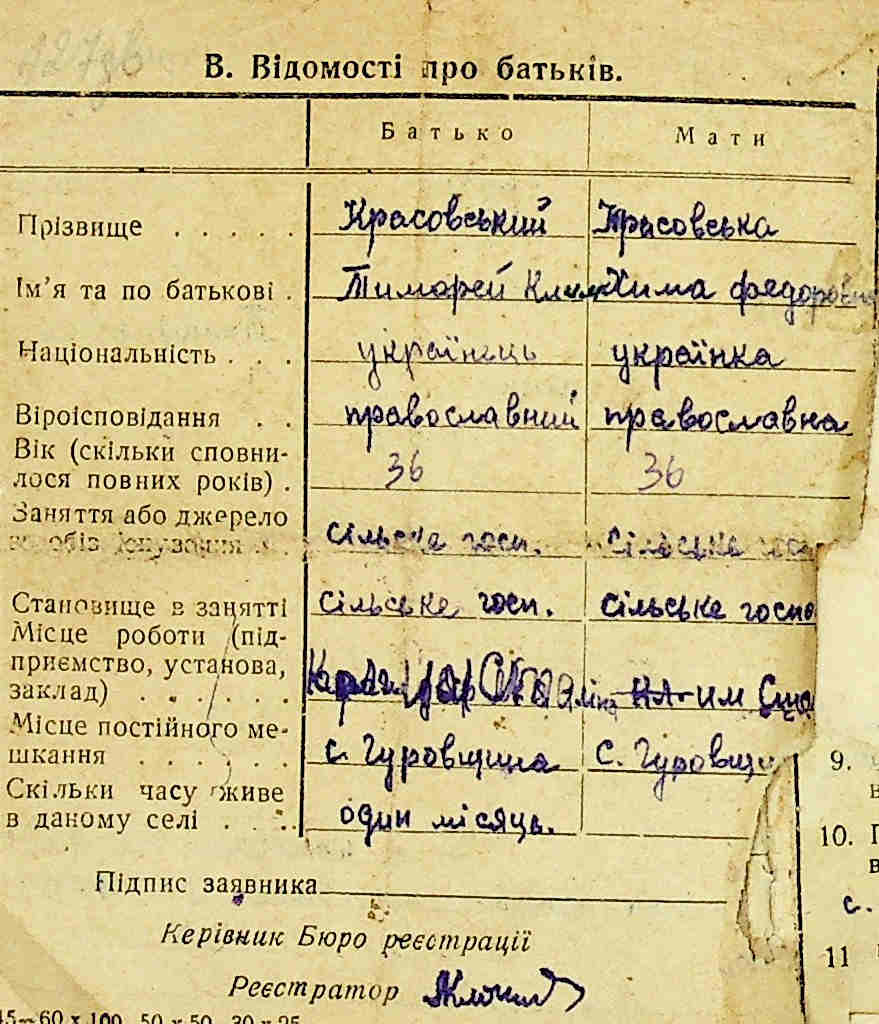 В. Відомості про батьків.
Батько Мати
Прізвище . . . . . Красовський Красовська
Ім'я та по батькові . Тимофей Хима Федоровна
Національність . . . українець українка
Віроісповідання . . православний православна
Вік (скільки сповни-
лося повних років) . 36 36
Заняття або джерело
сільске госп. сільське
Становище в занятті сільське госп. сільське госпо
Місце роботи (під-
приємство, установа,
заклад) . . . . . им
Місце постійного ме-
шкання . . . . . . с. Гуровщина с. Гуровщи
Скільки часу живе
в даному селі . . . . один місяць.
Підпис заявника
Керівник Бюро реєстрації
Реєстратор
45—60 x 100 50 x 50 30 x 25
9.
10.
с.
11